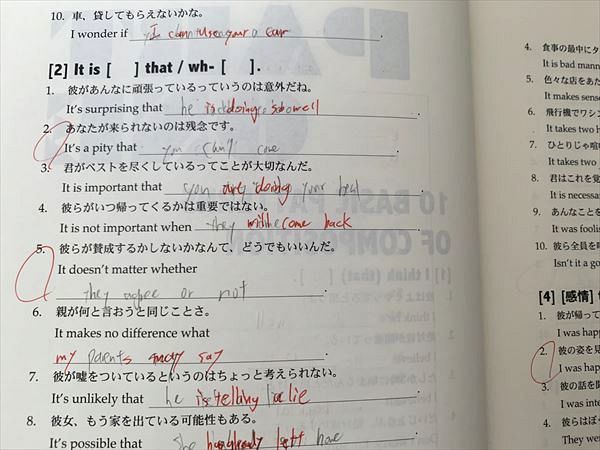 10. 車、貸してもらえないかな。
I wonder if I can use your car.
[2] It is [ ] that / wh- [ ].
1. 彼があんなに頑張っているっていうのは意外だね。
It's surprising that he is doing so well.
2. あなたが来られないのは残念です。
It's a pity that you can't come.
3. 君がベストを尽くしているってことが大切なんだ。
It is important that you are doing your best.
4. 彼らがいつ帰ってくるかは重要ではない。
It is not important when they will come back.
5. 彼らが賛成するかしないかなんて、どうでもいいんだ。
It doesn't matter whether
they agree or not.
6. 親が何と言おうと同じことさ。
It makes no difference what
my parents may say.
7. 彼が嘘をついているというのはちょっと考えられない。
It's unlikely that he is telling a lie.
8. 彼女、もう家を出ている可能性もある。
It's possible that she has already left home
10 BASIC
OF COMPOSITION
4. 食事の最中にタ
It is bad mann
5. 色々な店をあた
It makes sense
6. 飛行機でワシン
It takes two h
7. ひとりじゃ喧
It takes two
8. 君はこれを覚
It is necessar
9. あんなことを
It was foolis
10. 彼ら全員を呼
Isn't it a go
[4] [感情]
1. 彼が帰って
I was happ
2. 彼の姿を見
I was hap
3. 彼の話を
I was inte
4. 彼らはぼっ
They wer